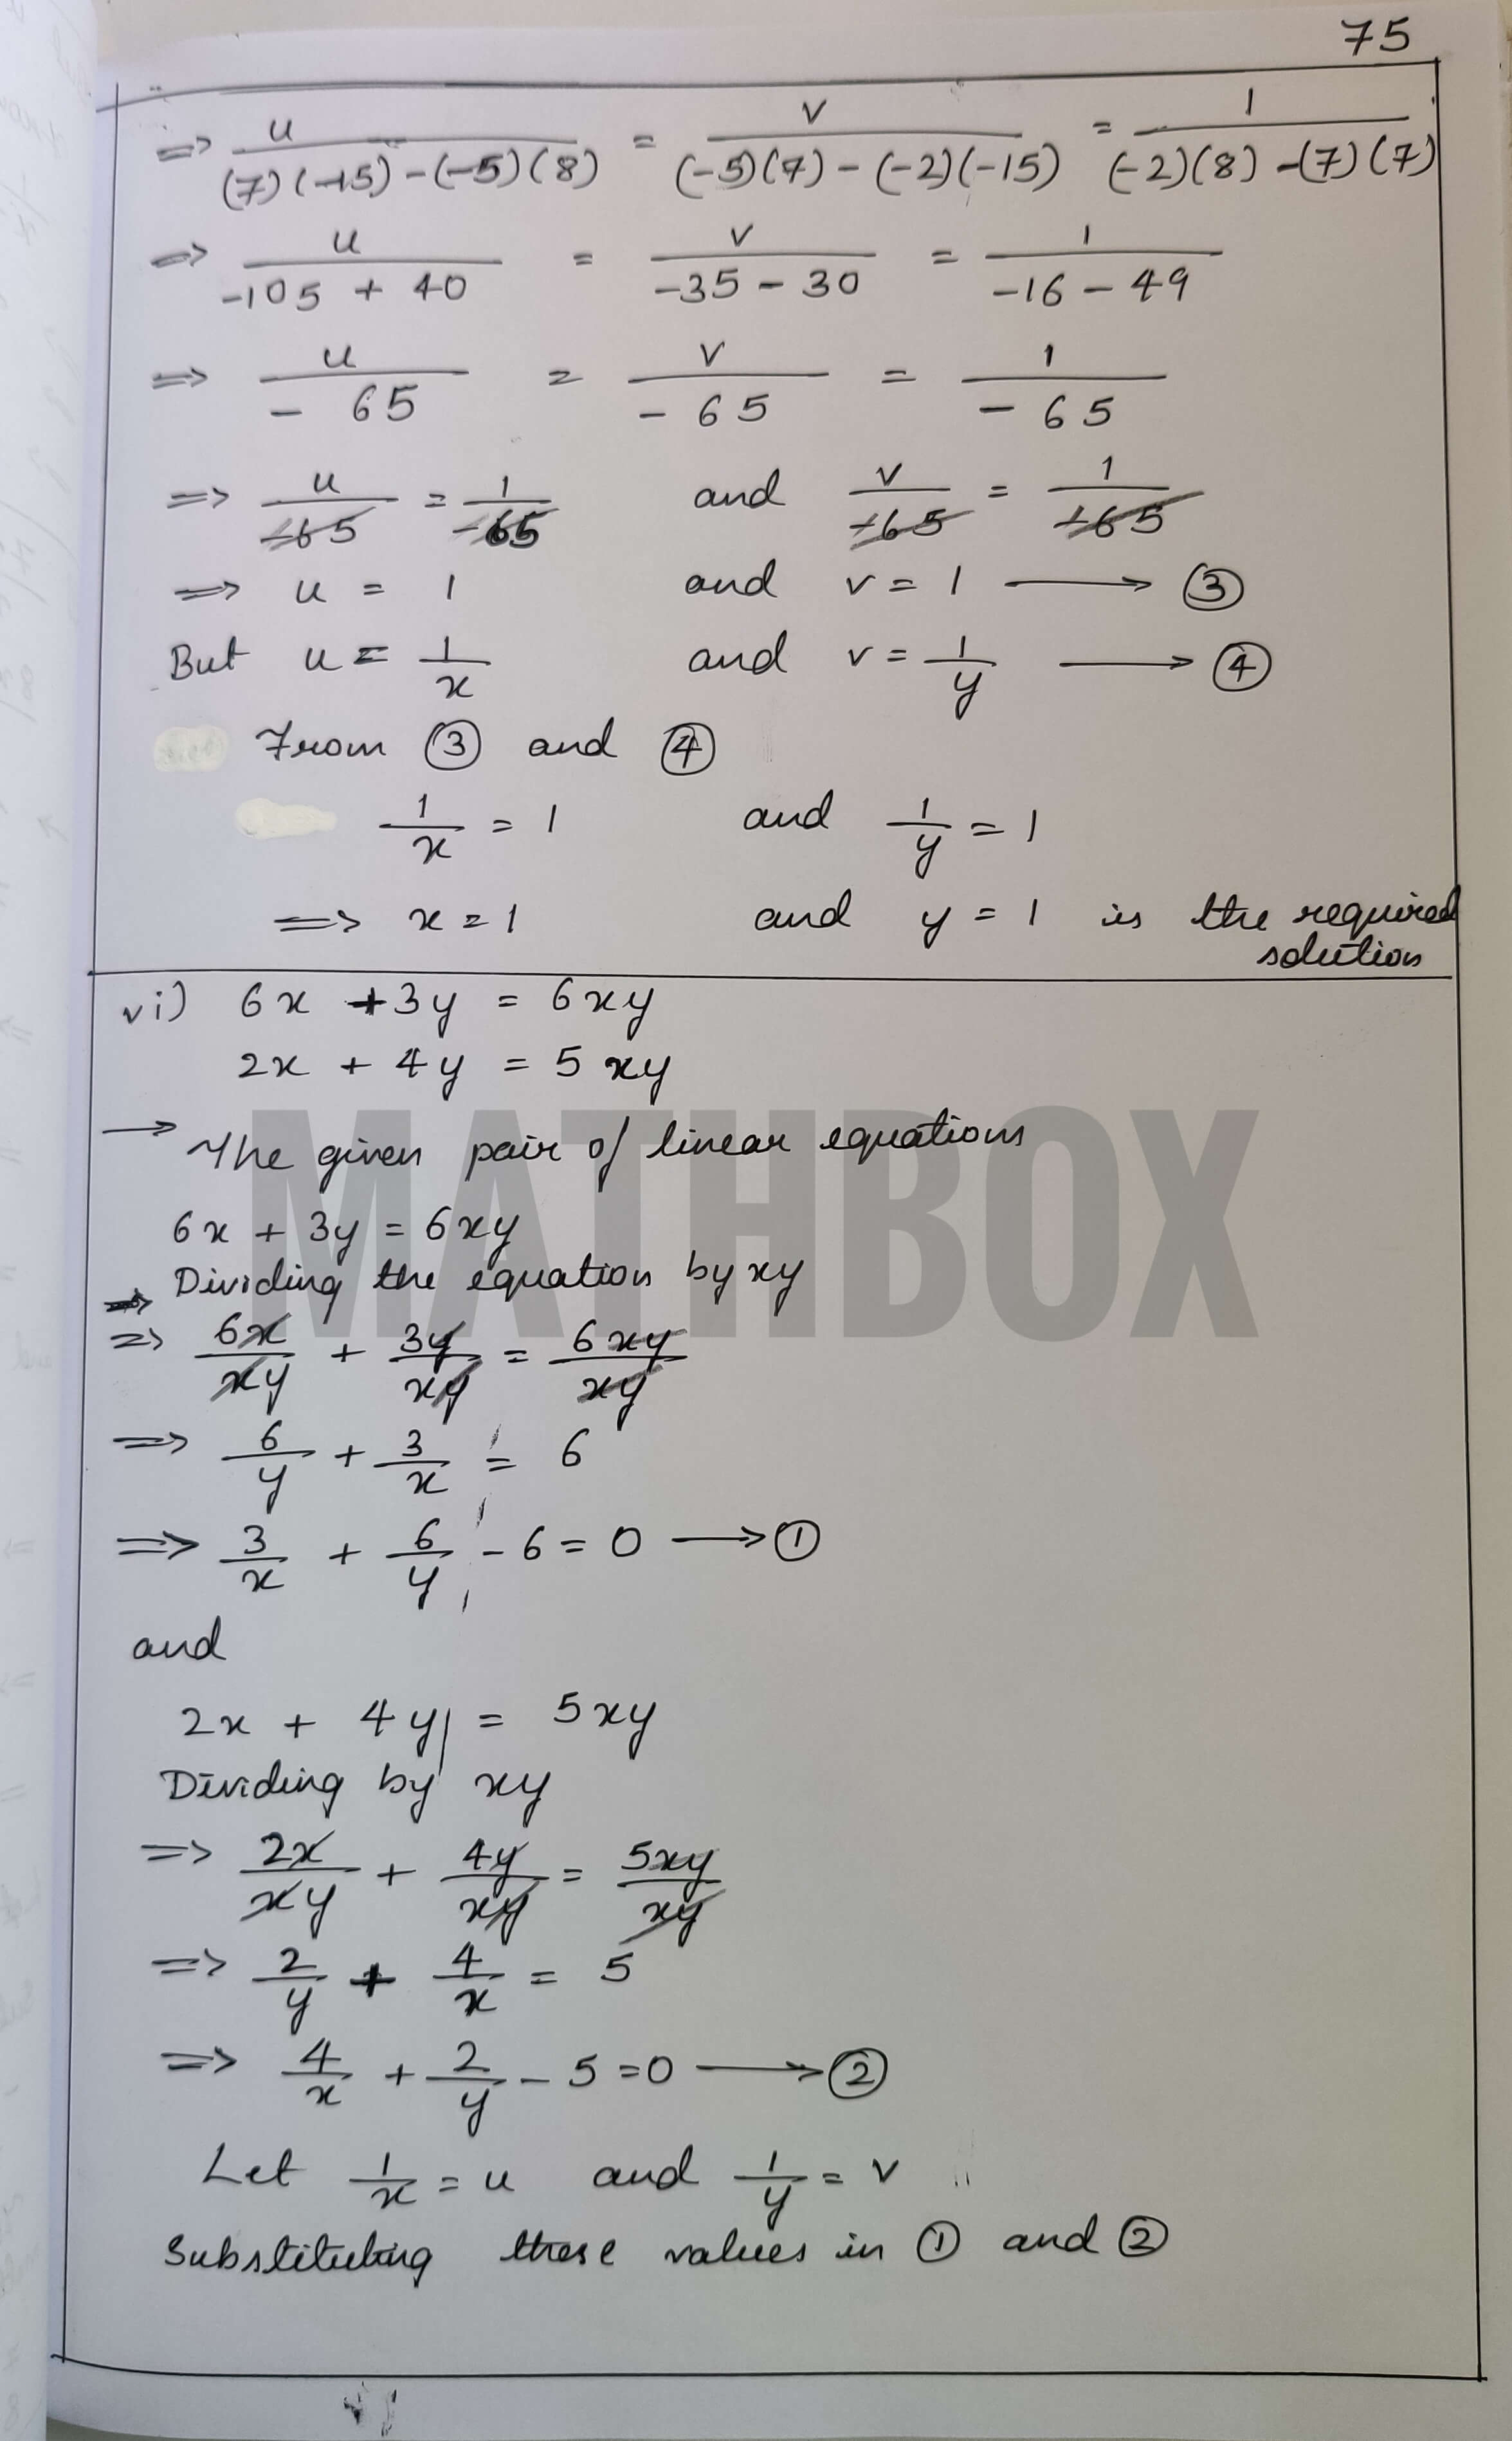 75
=> u/((7)(-15) - (-5)(8)) = v/((-5)(7) - (-2)(-15)) = 1/((-2)(8) - (7)(7))
=> u/(-105 + 40) = v/(-35 - 30) = 1/(-16 - 49)
=> u/(- 65) = v/(- 65) = 1/(- 65)
=> u/(-65) = 1/(-65) and v/(-65) = 1/(-65)
=> u = 1 and v = 1 ⟶ ③
But u = 1/x and v = 1/y ⟶ ④
From ③ and ④
1/x = 1 and 1/y = 1
=> x = 1 and y = 1 is the required
solution
vi) 6x + 3y = 6xy
2x + 4y = 5xy
→ The given pair of linear equations
6x + 3y = 6xy
Dividing the equation by xy
=> 6x/xy + 3y/xy = 6xy/xy
=> 6/y + 3/x = 6
=> 3/x + 6/y - 6 = 0 ⟶ ①
and
2x + 4y = 5xy
Dividing by xy
=> 2x/xy + 4y/xy = 5xy/xy
=> 2/y + 4/x = 5
=> 4/x + 2/y - 5 = 0 ⟶ ②
Let 1/x = u and 1/y = v
Substituting these values in ① and ②
MATHBOX